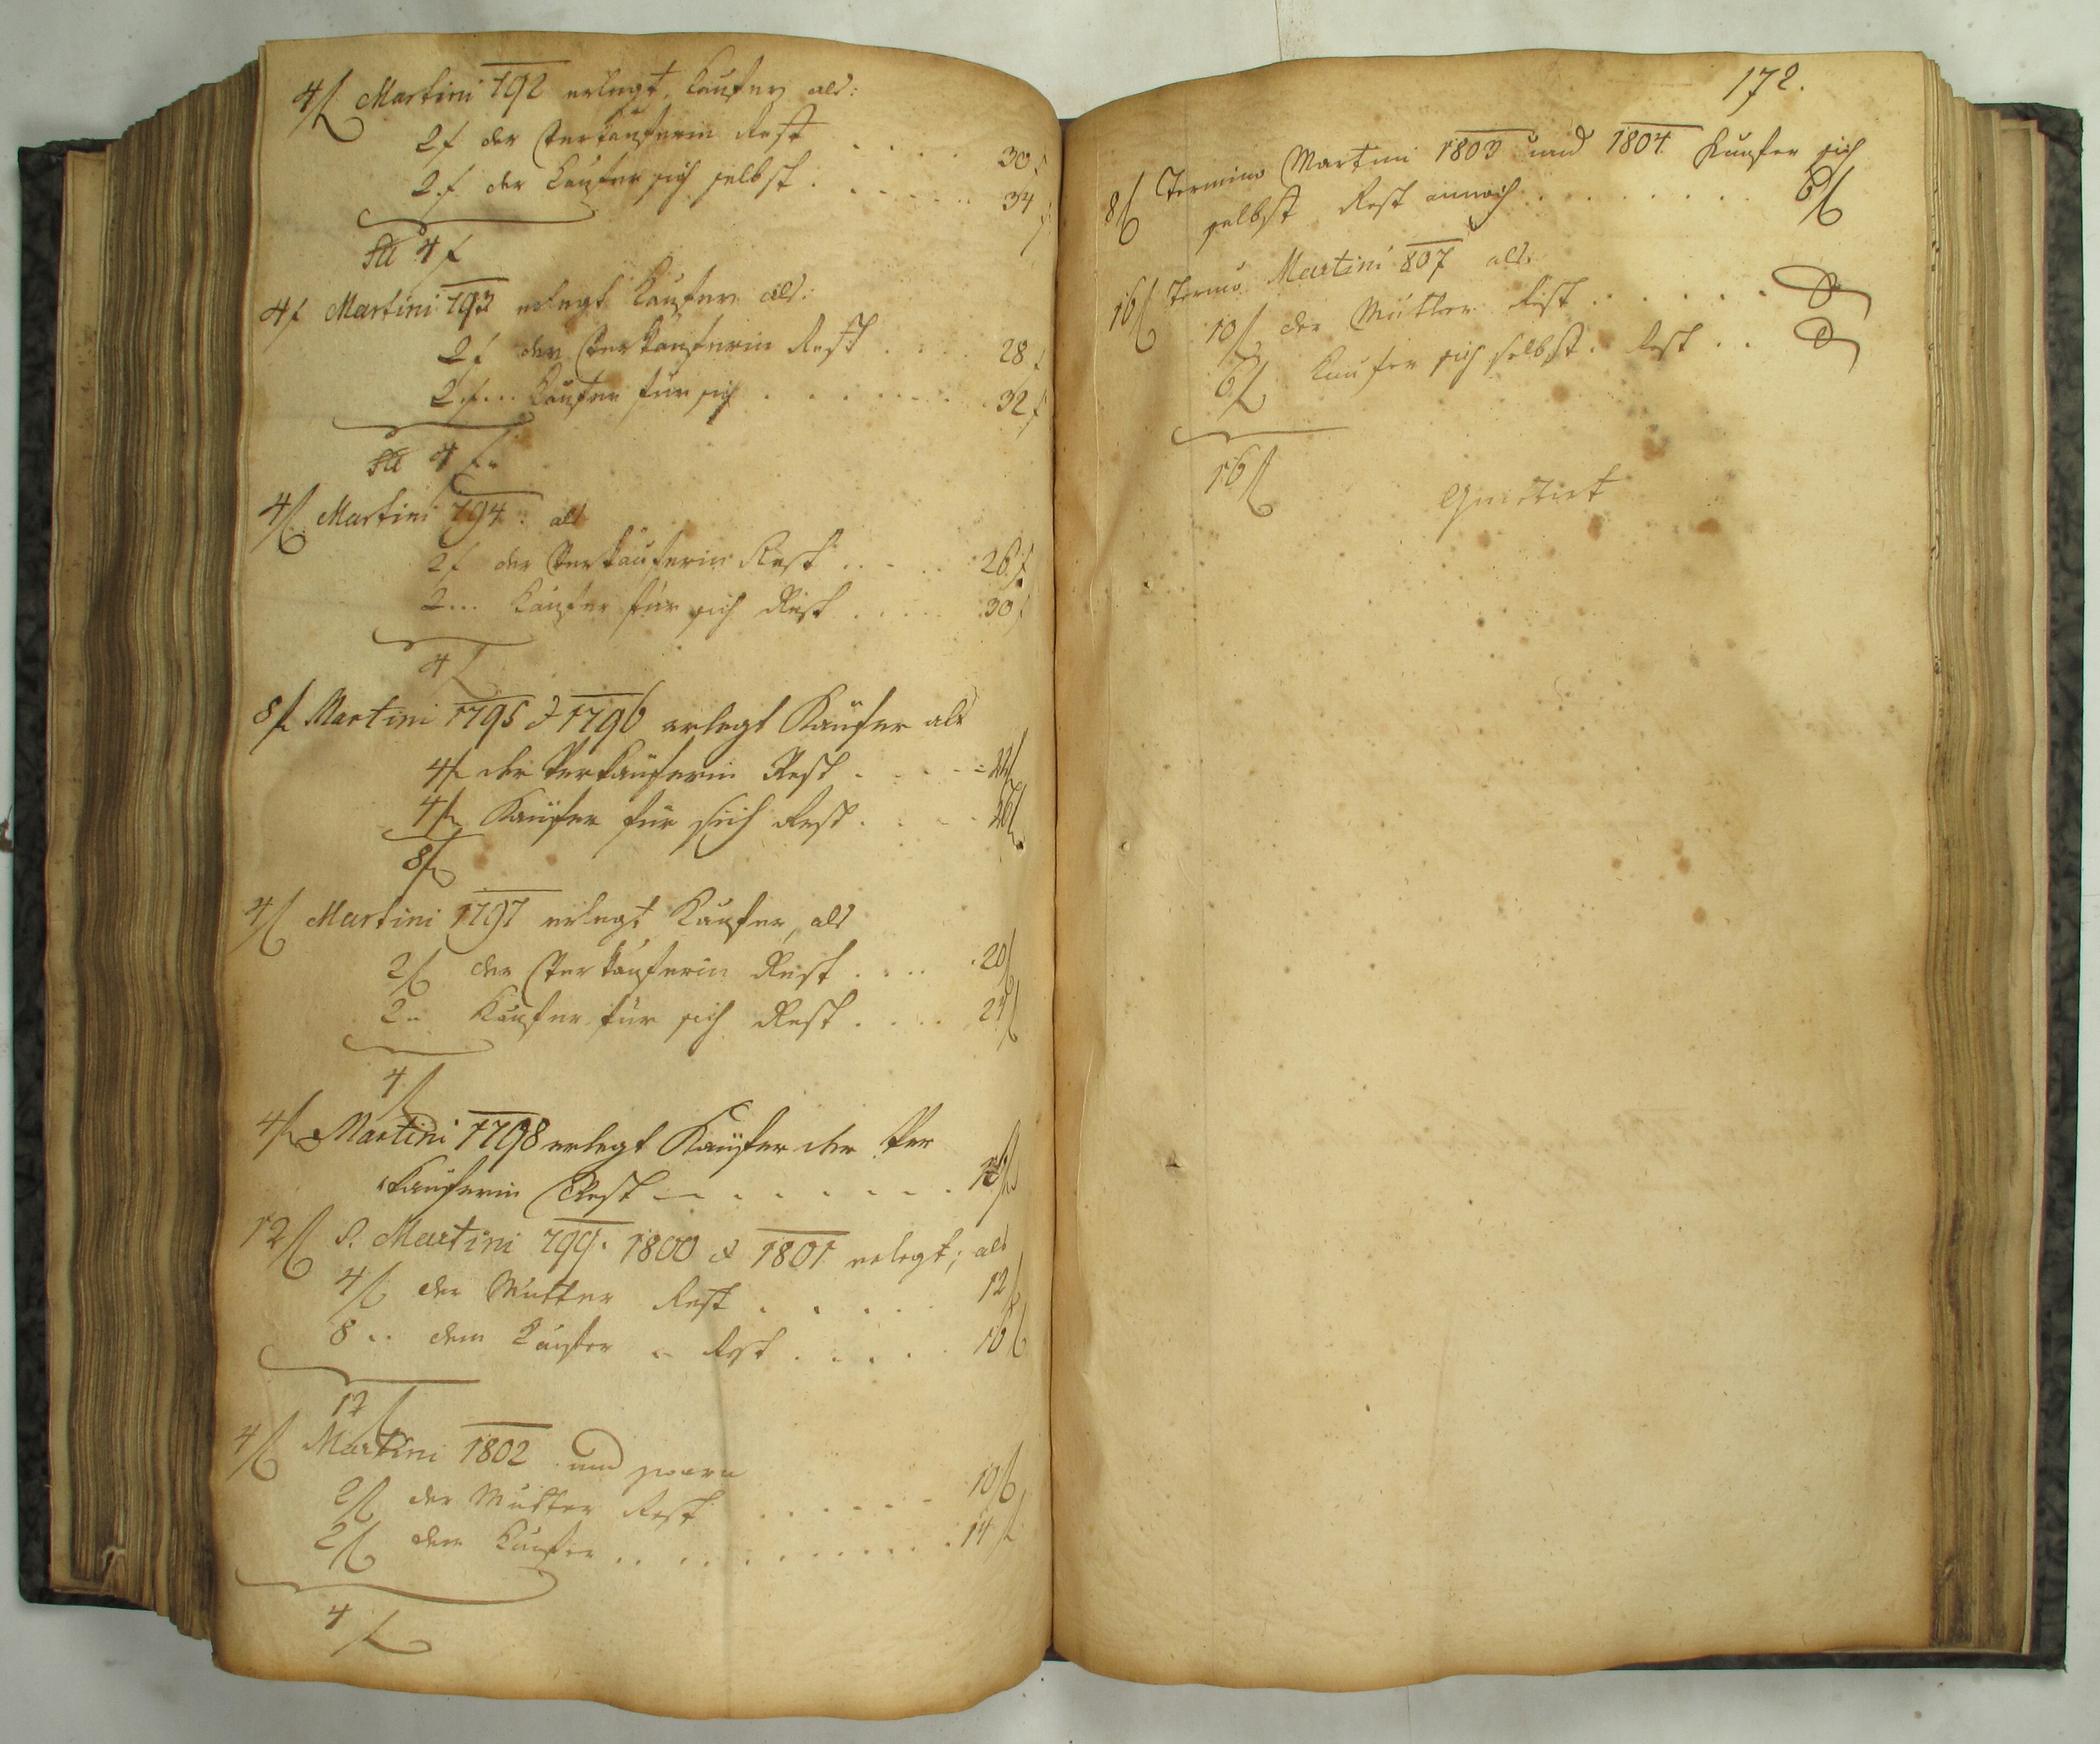 4 f Martini 792 erlegt Kaufer als:
2 f der Verkäuferin Rest . . . . 30 f
2 f der Käufer sich selbst . . . . . . 34 f
4 f
4 f Martini 793 erlegt Käufer als:
2 f der Verkäuferin Rest . . . . 28 f
2 f... Käufer für sich . . . . . . . 32 f
4 f
4 f Martini 794. als
2 f der Verkäuferin Rest . . . . . 26 f
2... Käufer für sich Rest . . . . . 30 f
4 f
8 f Martini 1795 & 1796 erlegt Käufer als
4 f der Verkäuferin Rest . . . . . 22 f
4 f Käufer für sich Rest . . . . . 26 f
8 f
4 f Martini 1797 erlegt Käufer, als
2 f der Verkäuferin Rest . . . . . 20 f
2 .. Käufer für sich Rest . . . . 24 f
4 f
4 f Martini 1798 erlegt Käufer der Ver
käuferin Rest . . . . . . . . 16 f
12 f S. Martini 799. 1800 & 1801 erlegt; als
4 f der Mutter Rest . . . . . 12 f
8 .. dem Käufer Rest . . . . . 16 f
12 f
4 f Martini 1802 und zwarn
2 f der Mutter Rest . . . . . . 10 f
2 f dem Käufer . . . . . . . . . . . 14 f
4 f
172.
8 f Termino Martini 1803 und 1804 Kaufer sich
selbst Rest annoch . . . . . . . . 6 f
16 f Termino Martini 807 als:
10 f der Mutter Rest . . . . . . 0
6 f Kaufer sich selbst. Rest . . 0
16 f
Quittirt